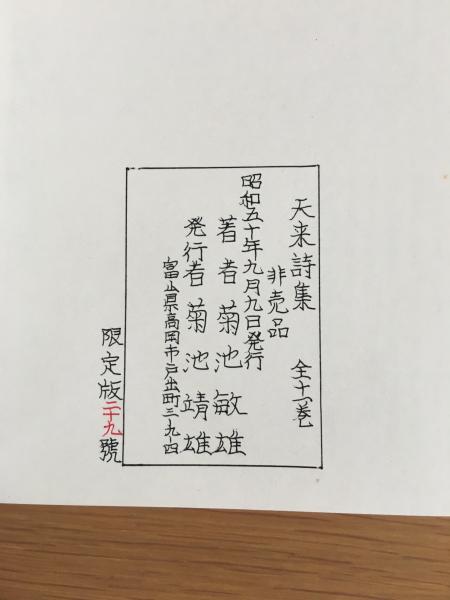 天来詩集 全十一巻
非売品
昭和五十年九月九日発行
著者 菊池敏雄
発行者 菊池靖雄
富山県高岡市戸出町三九四
限定版二十九號